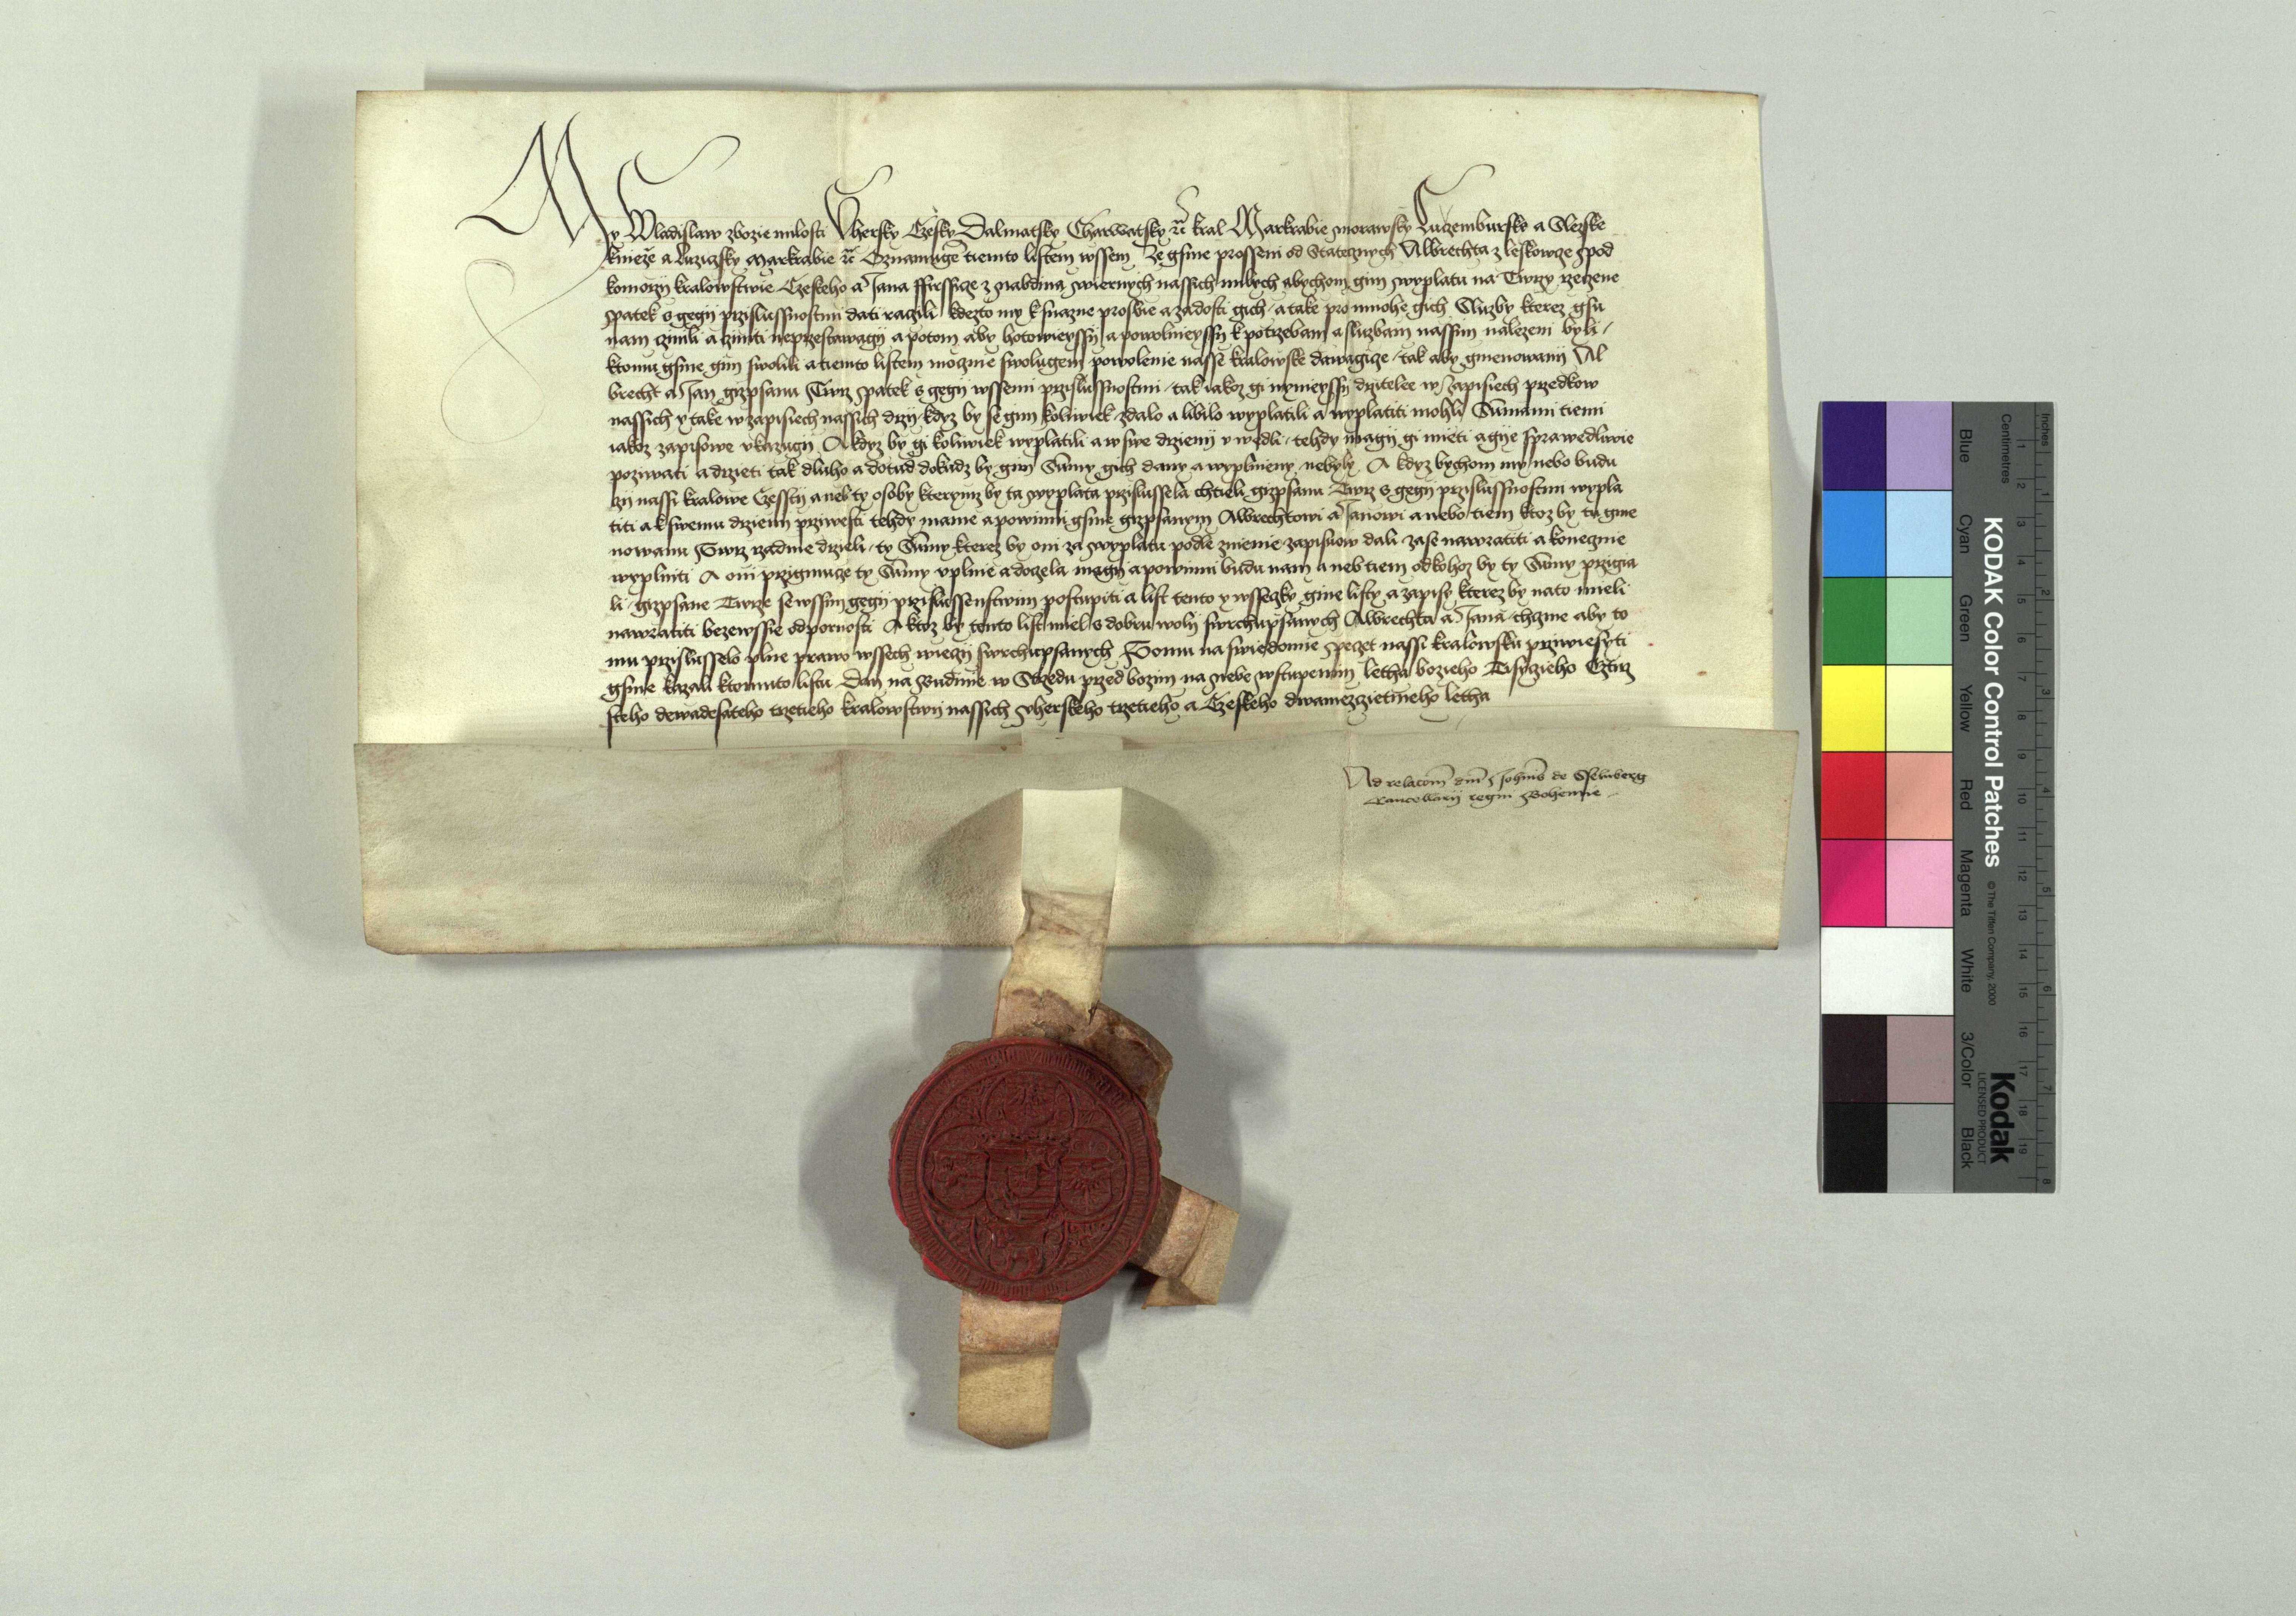 My Wladislaw zbozie milosti Vhersky Czesky Dalmatsky Charwatsky ꝛc̃ kral Markrabie morawsky Luczemburske a Slezske
knieze a Luziczsky Markrabie ꝛc̃ Oznamugē tiemto listem wssem Ze gsme prosseni od Statecznych Albrechta z leskowcze pod
komorzij kralowstwie Czeskeho a Jana ffirssicze z nabdina wiernych nassich milych abychom gim wyplatu na Twrzy rzeczene
spatek s gegij przislussnostmi dati raczili kdezto my k snazne prosbie a zadosti gich a take pro mnohe gich Sluzby kterez gsu
nam czinili a ziniti neprzestawagij a potom aby hotowieyssij a powolnieyssij k potrzebam a sluzbam nassim nalezeni byli /
ktomu gsme gim swolili a tiemto listem moczne swolugem powolenie nasse kralowske dawagicze / tak aby gmenowanij Al
brecht a Jan girzpsanu Twrz spatek s gegij wssemi przislussnostmi / tak iakoz gi nynieyssij drzitelee w zapisiech przedkow
nassich y take w zapisiech nassich drzij / kdyz by se gim koliwiek zdalo a libilo wyplatili a wyplatiti mohli Sumami tiemi
iakoz zapisowe vkazugij A kdyz by gi koliwiek wyplatili a w swe drzienij vwedli / tehdy magij gi mieti a gije sprawedliwie
poziwati a drzieti tak dluho a dotud dokudz by gim Sumy gich dany a wyplnieny nebyly A kdyz bychom my nebo budu
czij nassi kralowe Czesstij aneb ty osoby kterymz by ta wyplata przislussela chtieli girzpsanu Twrz s gegij przislussnostmi wypla
titi a k swemu drzieni przwesti tehdy mame a powinni gsme girzpsanym Albrechtowi a Janowi a nebo tiem ktoz by tu gme
nowanu Twrz rzadnie drzieli / ty Sumy kterez by oni za wyplatu podle znienie zapisuow dali zase nawratiti a konecznie
wyplniti A oni przigmucze ty Sumy vplnie a doczela magij a powinni budu nam aneb tiem odkohoz by ty Sumy przigia
li / girzpsane Twrze sewssim gegij przislussenstwim postupiti a list tento y wsseczky gine listy a zapisy kterez by nato mieli
nawratiti bezewssie odpornosti A ktoz by tento list miel s dobru woli swrchupsanych Albrechta a Jana / chczme aby to
mu przislusselo plne prawo wssech wieczij swrchupsanych Tomu na swiedomie peczet nassi kralowsku przwiesyti
gsme kazali ktomuto listu Dan na Budinie w Strzedu przed bozim na nebe wstupenim letha bozieho Tisyczieho Cztirz
steho dewadesateho trzetieho kralowstwij nassich vherskeho trzetieho a Czeskeho dwamezczietmeho letha
Ad relacōm dm̄ Johīs de Sselmberg
Cancellarij regni Bohemie
KODAK Color Control Patches
© The Tiffen Company, 2000
Kodak
LICENSED PRODUCT
Inches
Centimetres
Blue
Cyan
Green
Yellow
Red
Magenta
White
3/Color
Black